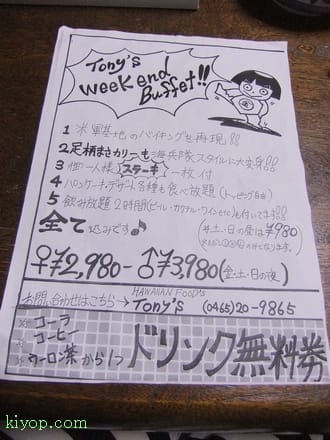 Tony's
Week end
Buffet!!
1 米軍基地のバイキングを再現!!
2 足柄まさカリーも海兵隊スタイルに大変身!!
3 御一人様 ステーキ 一枚付
4 パンケーキ・デザート各種も食べ放題 (トッピング自由)
5 飲み放題2時間(ビール・カクテル・ワインetc)も付いてます!!
全て込みです♪
※土・日の昼は¥980
♀¥2,980- ♂¥3,980(金・土・日の夜)
お問い合わせはこちら→
HAWAIIAN FOOD'S
Tony's
(0465)20-9865
コーラ
コーヒー
ウーロン茶から1つ
ドリンク無料券
kiyop.com
kiyop.com